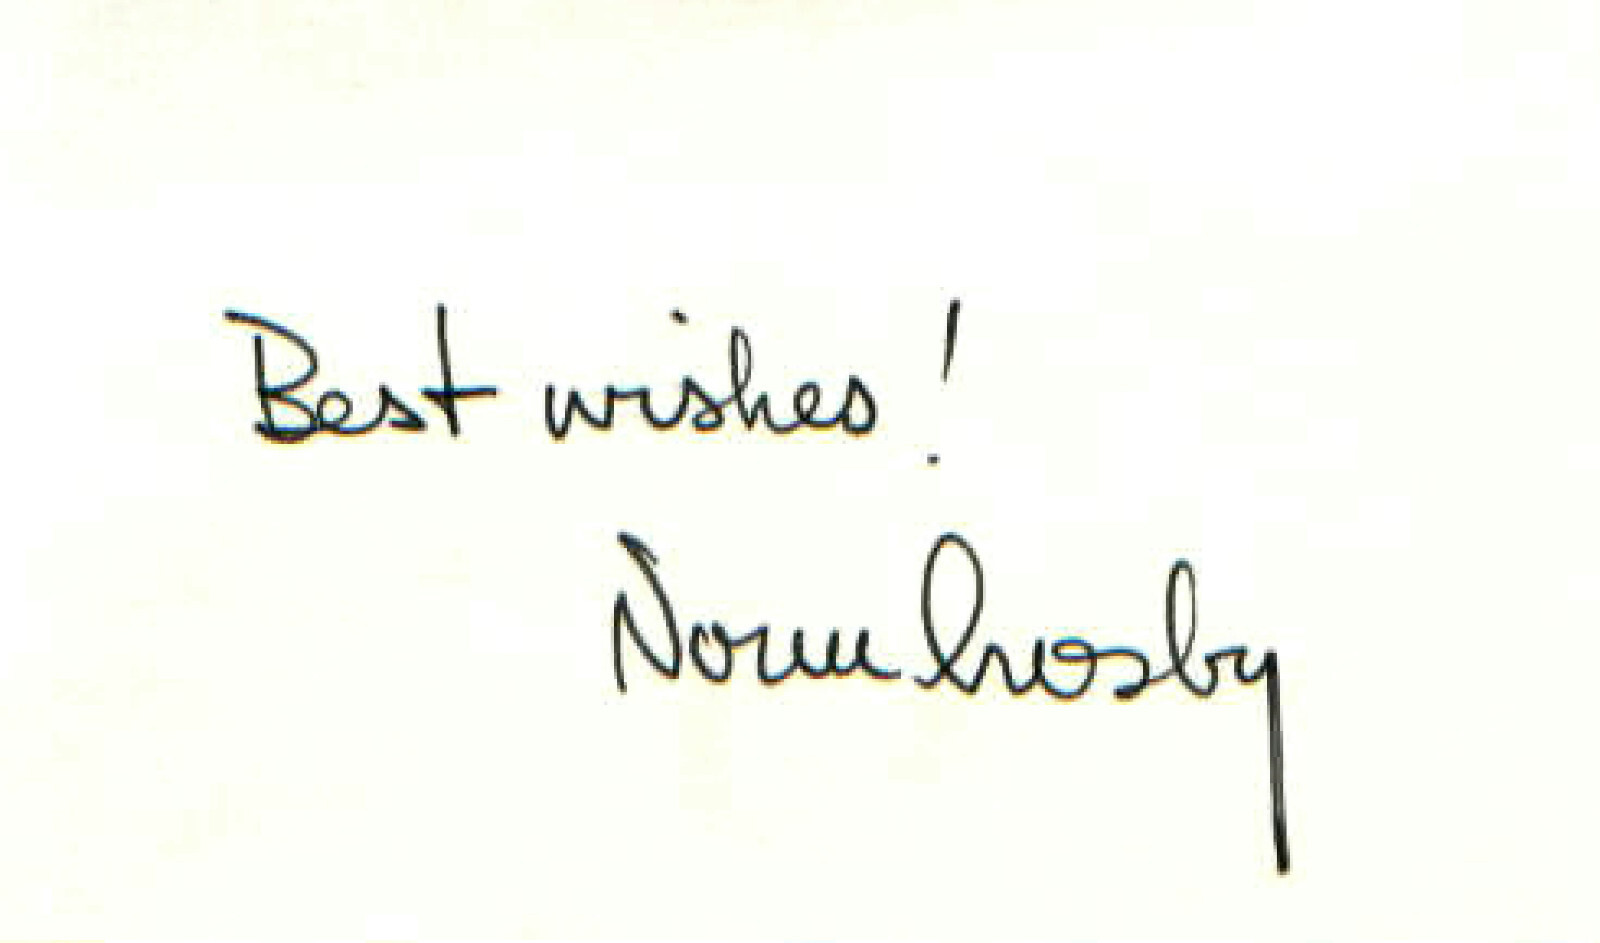 Best wishes!
Norm Crosby